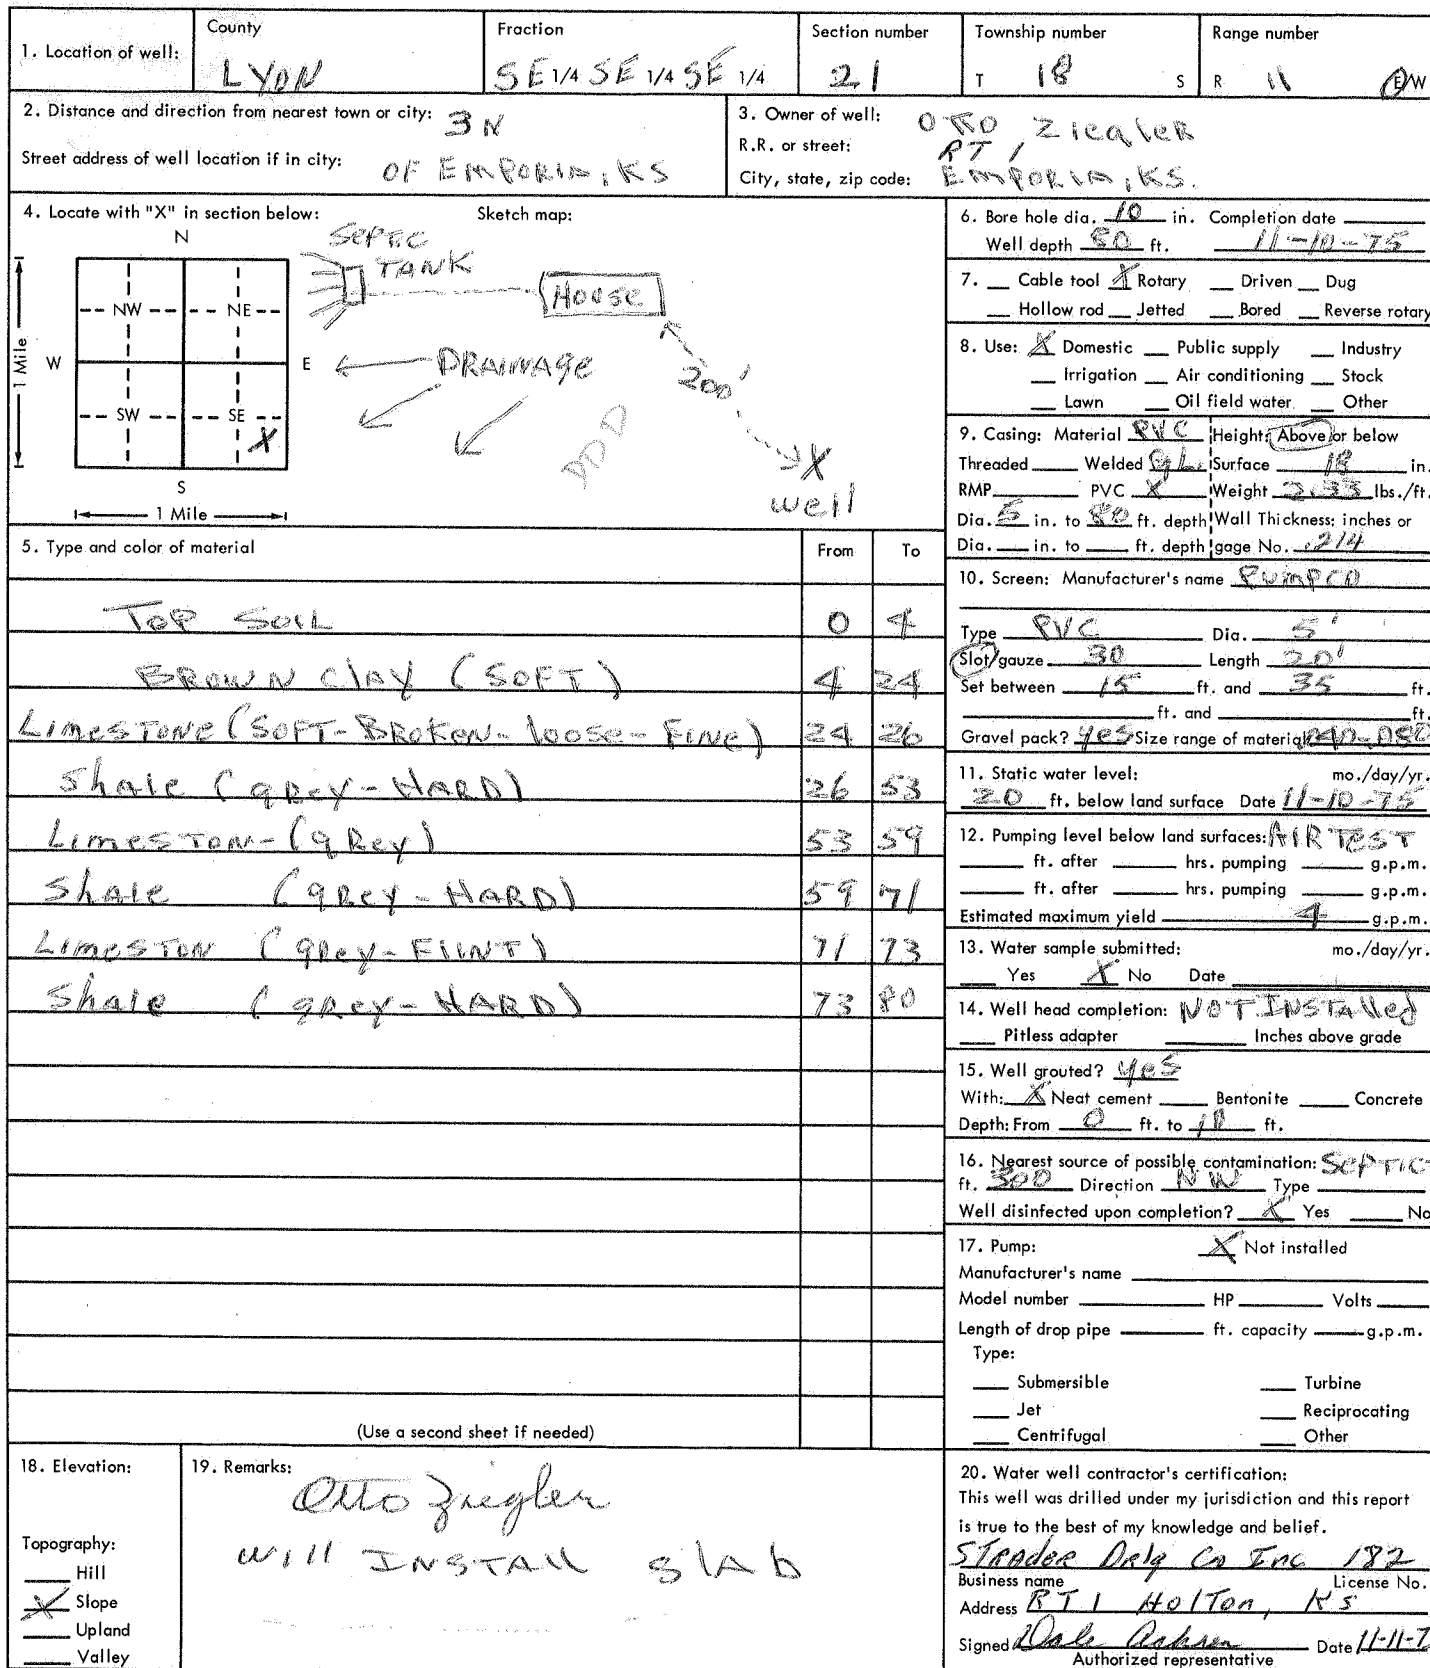 1. Location of well: County LYON Fraction SE 1/4 SE 1/4 SE 1/4 Section number 21 Township number T 18 S Range number R 11 E/W
2. Distance and direction from nearest town or city: 3 N
OF EMPORIA, KS
Street address of well location if in city:
3. Owner of well: OTTO Ziegler
R.R. or street: RT 1
City, state, zip code: EMPORIA, KS.
4. Locate with "X" in section below: Sketch map:
N
NW NE
W E
SW SE
X
S
1 Mile
1 Mile
SEPTIC
TANK
House
DRAINAGE
200'
X
well
5. Type and color of material From To
TOP SOIL 0 4
BROWN CLAY (SOFT) 4 24
LIMESTONE (SOFT-BROKEN-loose-FINE) 24 26
Shale (gRey-HARD) 26 53
LIMESTON-(gRey) 53 59
Shale (gRey-HARD) 59 71
LIMESTON (gRey-FlINT) 71 73
Shale (gRey-HARD) 73 80
(Use a second sheet if needed)
6. Bore hole dia. 10 in. Completion date
Well depth 80 ft. 11-10-75
7. Cable tool X Rotary Driven Dug
Hollow rod Jetted Bored Reverse rotary
8. Use: X Domestic Public supply Industry
Irrigation Air conditioning Stock
Lawn Oil field water Other
9. Casing: Material PVC Height: Above or below
Threaded Welded GL. Surface 18 in.
RMP PVC X Weight 2.33 lbs./ft.
Dia. 5 in. to 80 ft. depth Wall Thickness: inches or
Dia. in. to ft. depth gage No. .214
10. Screen: Manufacturer's name PUMPCO
Type PVC Dia. 5'
Slot/gauze 30 Length 20'
Set between 15 ft. and 35 ft.
ft. and ft.
Gravel pack? yes Size range of material 040-080
11. Static water level: mo./day/yr.
20 ft. below land surface Date 11-10-75
12. Pumping level below land surfaces: AIR TEST
ft. after hrs. pumping g.p.m.
ft. after hrs. pumping g.p.m.
Estimated maximum yield 4 g.p.m.
13. Water sample submitted: mo./day/yr.
Yes X No Date
14. Well head completion: NOT INSTAlled
Pitless adapter Inches above grade
15. Well grouted? yes
With: X Neat cement Bentonite Concrete
Depth: From 0 ft. to 10 ft.
16. Nearest source of possible contamination: SEPTIC
ft. 300 Direction NW Type
Well disinfected upon completion? X Yes No
17. Pump: X Not installed
Manufacturer's name
Model number HP Volts
Length of drop pipe ft. capacity g.p.m.
Type:
Submersible Turbine
Jet Reciprocating
Centrifugal Other
18. Elevation:
Topography:
Hill
X Slope
Upland
Valley
19. Remarks:
Otto Ziegler
will INSTAll slAb
20. Water well contractor's certification:
This well was drilled under my jurisdiction and this report
is true to the best of my knowledge and belief.
STRADER Drlg Co Inc 182
Business name License No.
Address RT 1 HolTon, KS
Signed Dale Date 11-11-7
Authorized representative